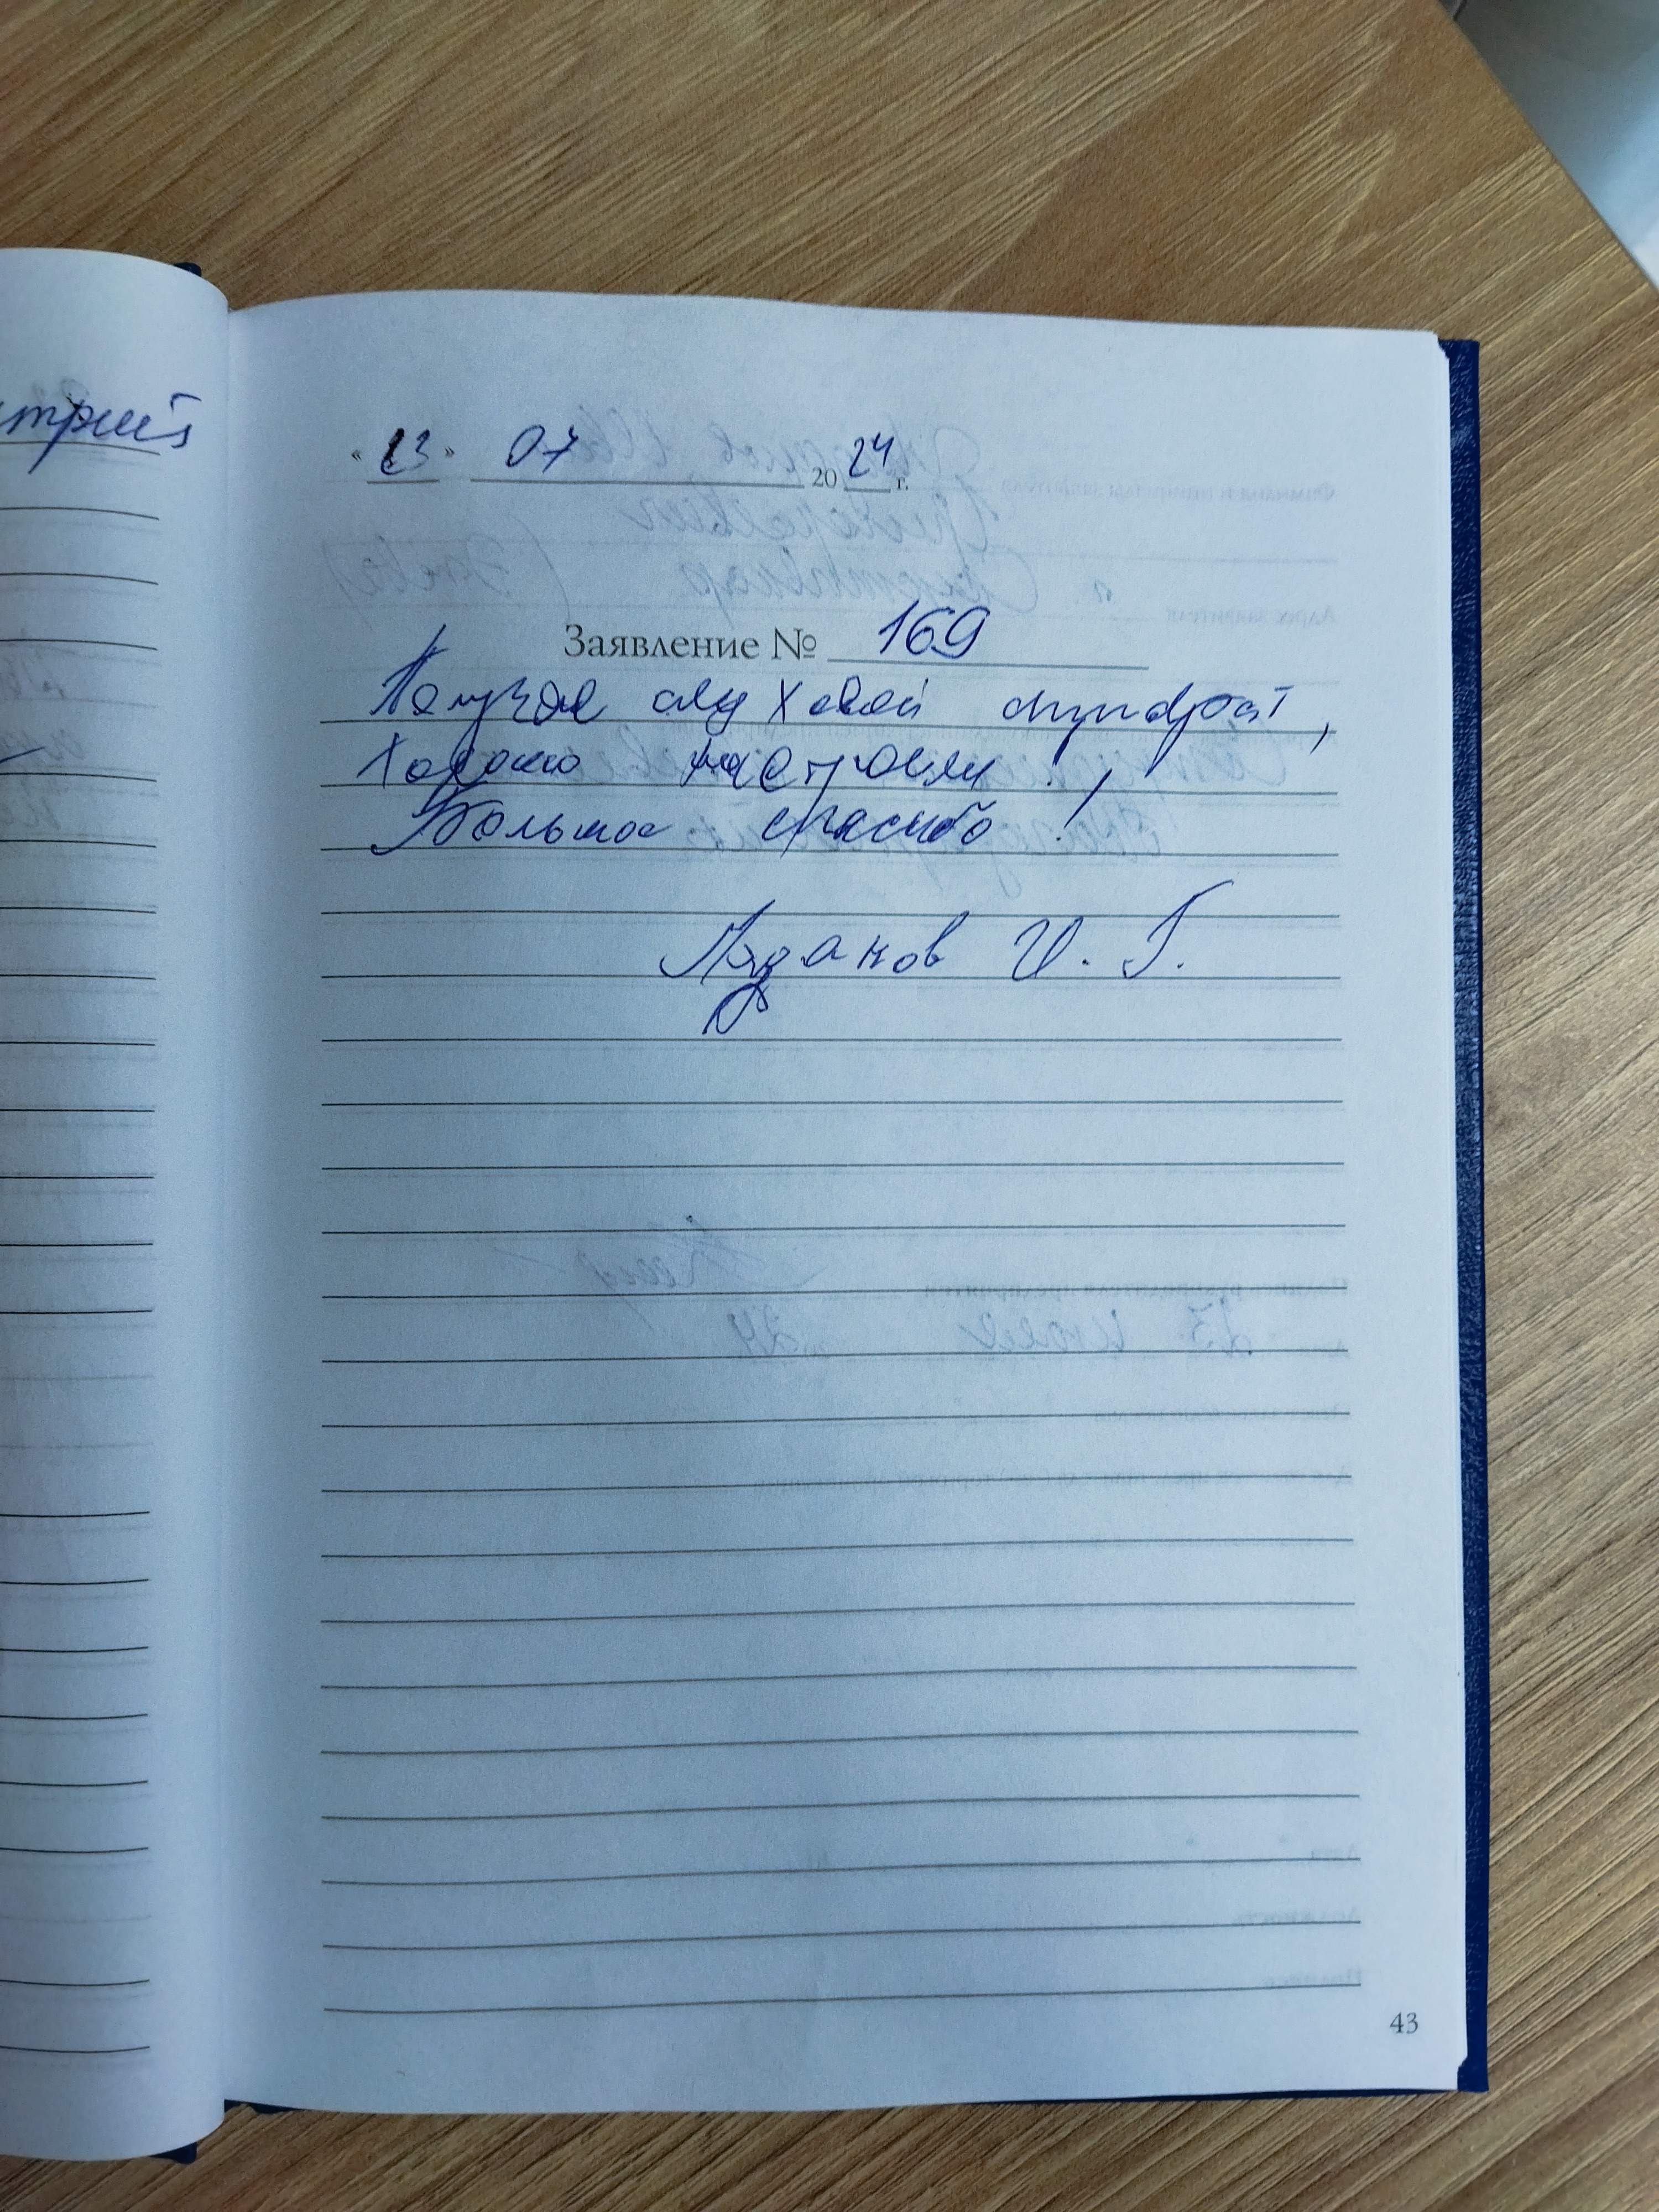 трий
«23» 07 2024 г.
Заявление № 169
Получил слуховой аппарат,
Хорошо настроили!,
Большое спасибо!
И. Г.
43